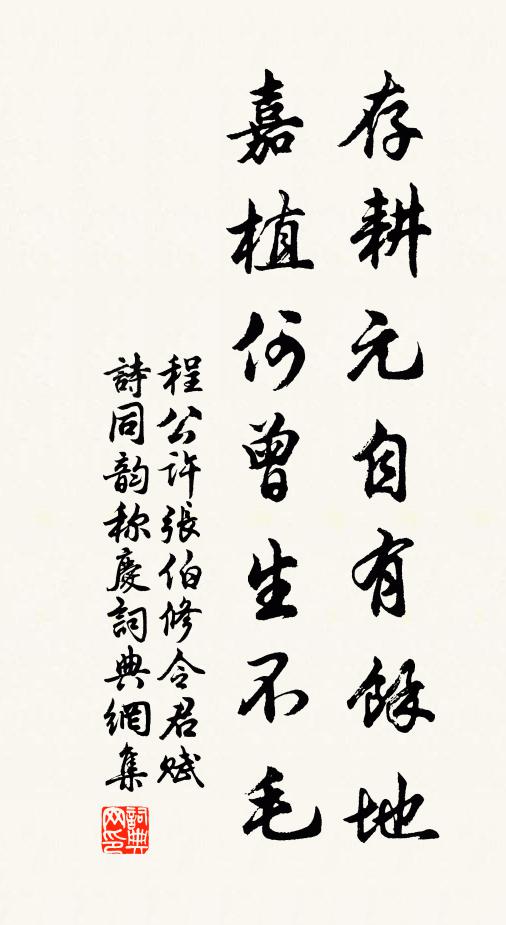 存耕元自有餘地
嘉植何曾生不毛
程公許張伯修令君賦
詩同韵称慶詞典網集
詞典网印